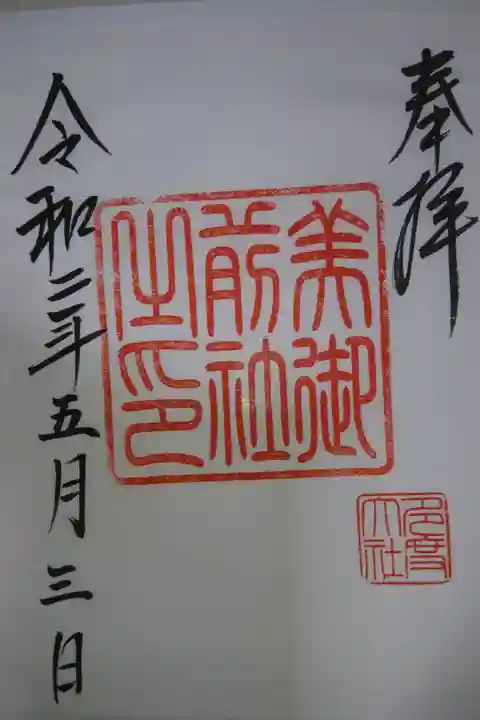 奉拝
美御
前社
之印
多度
大社
令和二年五月三日